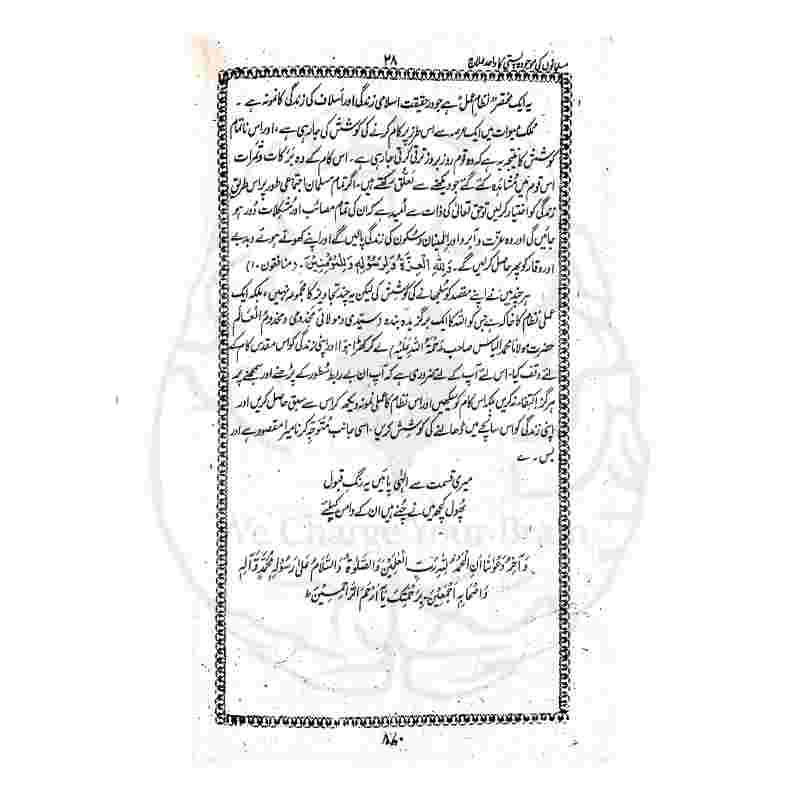 مسلمانوں کی موجودہ پستی کا واحد علاج
۲۸
یہ ایک مختصر "نظامِ عمل" ہے جو درحقیقت اسلامی زندگی اور اسلاف کی زندگی کا نمونہ ہے ۔
ملک میوات میں ایک عرصہ سے اس طرز پر کام کرنے کی کوشش کی جا رہی ہے ، اور اس ناتمام
کوشش کا نتیجہ یہ ہے کہ وہ قوم روز بروز ترقی کرتی جا رہی ہے ۔ اس کام کے وہ برکات و ثمرات
اس قوم میں مشاہدہ کئے گئے جو دیکھنے سے تعلق رکھتے ہیں ، اگر تمام مسلمان اجتماعی طور پر اس طریق
زندگی کو اختیار کر لیں تو حق تعالیٰ کی ذات سے امید ہے کہ ان کی تمام مصائب اور مشکلات دور ہو
جائیں گی اور وہ عزت و آبرو اور اطمینان و سکون کی زندگی پالیں گے اور اپنے کھوئے ہوئے دبدبے
اور وقار کو پھر حاصل کر لیں گے ۔ وَلِلّٰهِ الْعِزَّةُ وَلِرَسُوْلِهٖ وَلِلْمُؤْمِنِيْنَ ۔ (منافقون ۔ ۱)
ہر چند میں نے اپنے مقصد کو سلجھانے کی کوشش کی لیکن یہ چند تجاویز کا مجموعہ نہیں ، بلکہ ایک
عملی نظام کا خاکہ ہے جس کو اللہ کا ایک برگزیدہ بندہ (سیدی و مولائی مخدومی و مخدوم العالم
حضرت مولانا محمد الیاس صاحب رحمۃ اللہ علیہ) لے کر کھڑا ہوا اور اپنی زندگی کو اس مقدس کام کے
لئے وقف کیا ۔ اس لئے آپ کے لئے ضروری ہے کہ آپ ان بے ربط سطور کے پڑھنے اور سمجھنے پر
ہرگز اکتفا نہ کریں بلکہ اس کام کو سیکھیں اور اس نظام کا عملی نمونہ دیکھ کر اس سے سبق حاصل کریں اور
اپنی زندگی کو اس سانچے میں ڈھالنے کی کوشش کریں ۔ اسی جانب متوجہ کرنا میرا مقصود ہے اور
بس ۔ ؎
میری قسمت سے الٰہی پائیں یہ رنگِ قبول
پھول کچھ میں نے چنے ہیں ان کے دامن کیلئے
وَآخِرُ دَعْوٰنَا اَنِ الْحَمْدُ لِلّٰهِ رَبِّ الْعٰلَمِيْنَ وَالصَّلٰوةُ وَالسَّلَامُ عَلٰى رَسُوْلِهٖ مُحَمَّدٍ وَّآلِهٖ
وَاَصْحَابِهٖ اَجْمَعِيْنَ ۔ بِرَحْمَتِكَ يَآ اَرْحَمَ الرَّاحِمِيْنَ ط
We Charge Your Brain
۸۴۰